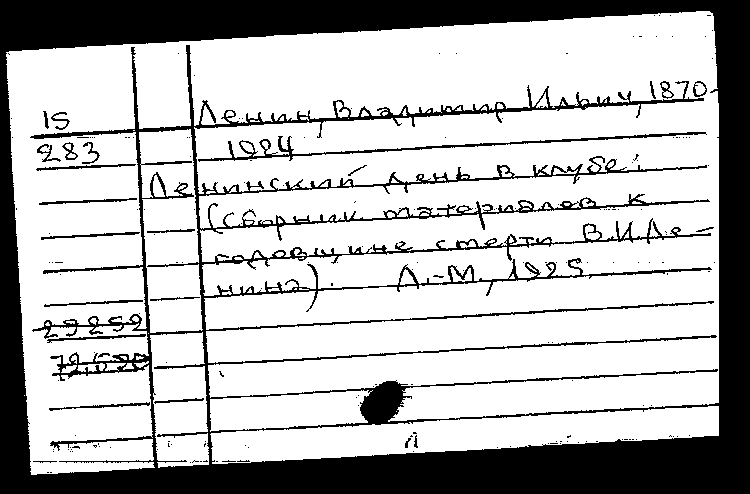 IS Ленин, Владимир Ильич, 1870-
283 1924
Ленинский день в клубе:
(сборник материалов к
годовщине смерти В.И.Ле-
нина). Л.-М., 1925
29252
Л